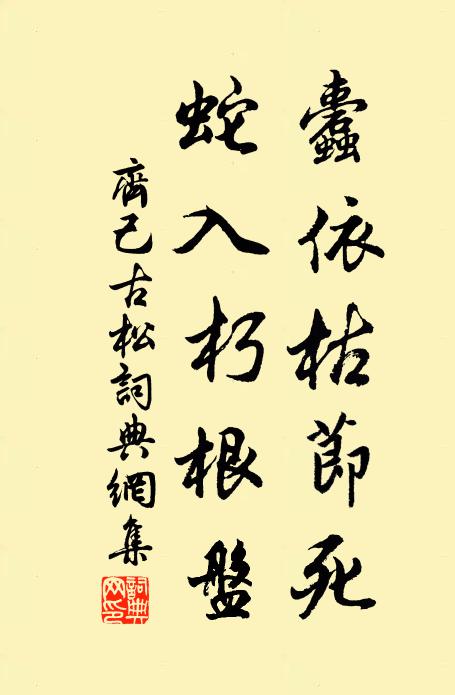 蠹依枯節死
蛇入朽根盤
齊己古松詞典網集
詞典網印